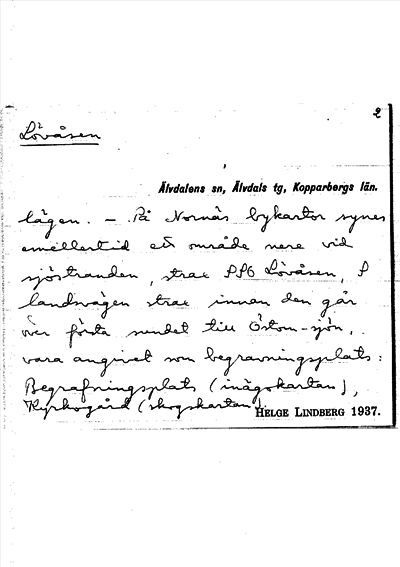 2
Lövåsen
Älvdalens sn, Älvdals tg, Kopparbergs län.
lägen. – På Nornäs bykartor synes
emellertid ett område nere vid
sjöstranden, strax SSO Lövåsen, S
landsvägen strax innan den går
över första sundet till Östom-sjön,
vara angivet som begravningsplats:
Begrafningsplats (inägokartan),
Kyrkogård (skogskartan).
HELGE LINDBERG 1937.